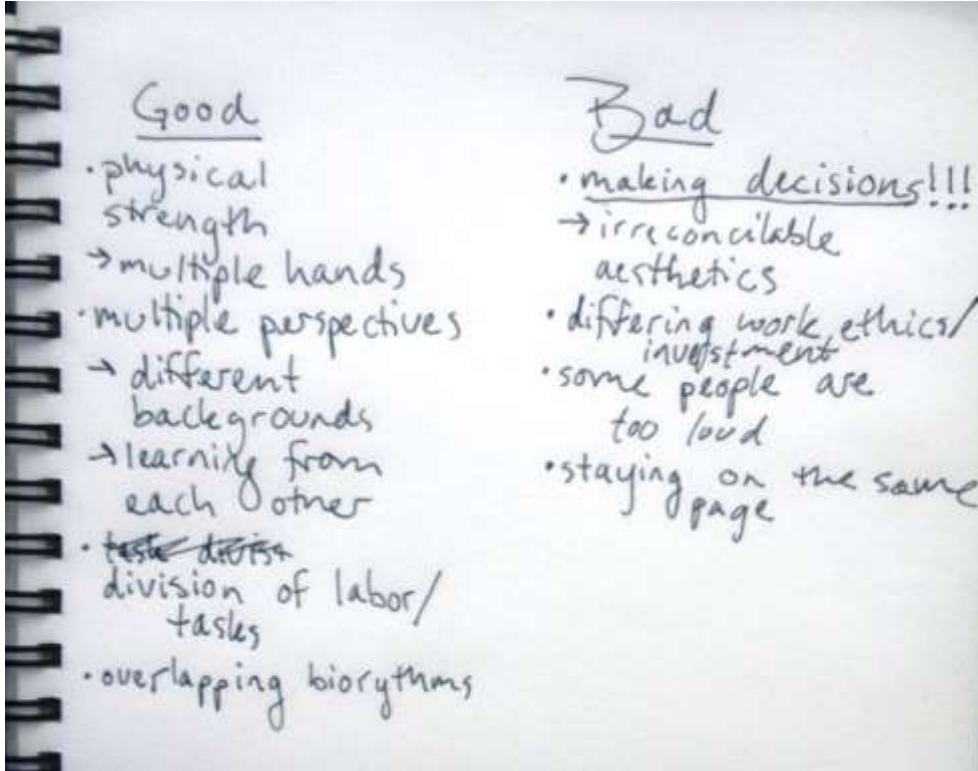 Good
·physical
strength
→multiple hands
·multiple perspectives
→different
backgrounds
→learning from
each other
·
division of labor/
tasks
·overlapping biorythms
Bad
·making decisions!!!
→irreconcilable
aesthetics
·differing work ethics/
investment
·some people are
too loud
·staying on the same
page